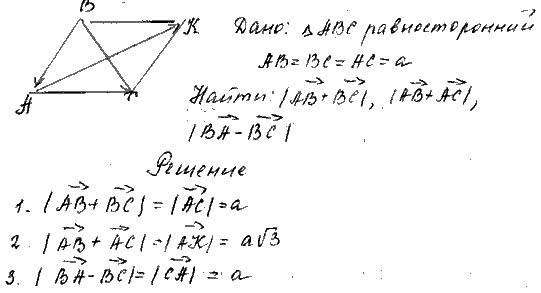 B
K
A
C
Дано: △ABC равносторонний
AB = BC = AC = a
Найти: |AB⃗ + BC⃗|, |AB⃗ + AC⃗|,
|BA⃗ - BC⃗|
Решение
1. |AB⃗ + BC⃗| = |AC⃗| = a
2. |AB⃗ + AC⃗| = |AK⃗| = a√3
3. |BA⃗ - BC⃗| = |CA⃗| = a